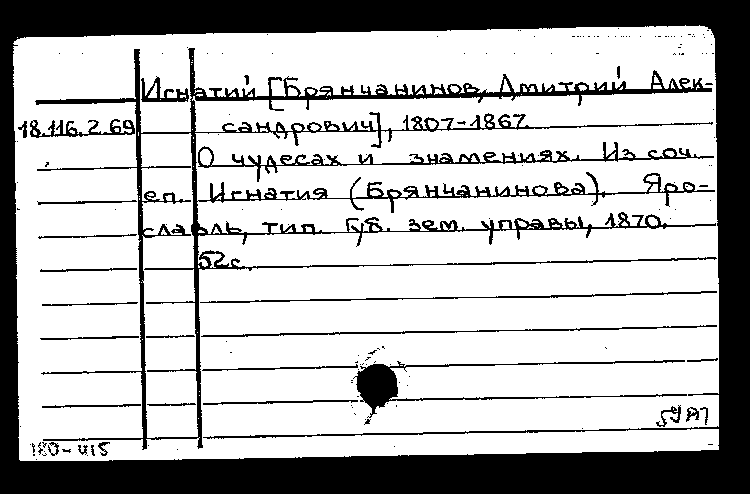 Игнатий [Брянчанинов, Дмитрий Алек-
18.116.2.69 сандрович], 1807-1867.
О чудесах и знамениях. Из соч.
еп. Игнатия (Брянчанинова). Яро-
славль, тип. Губ. зем. управы, 1870.
52с.
180-415